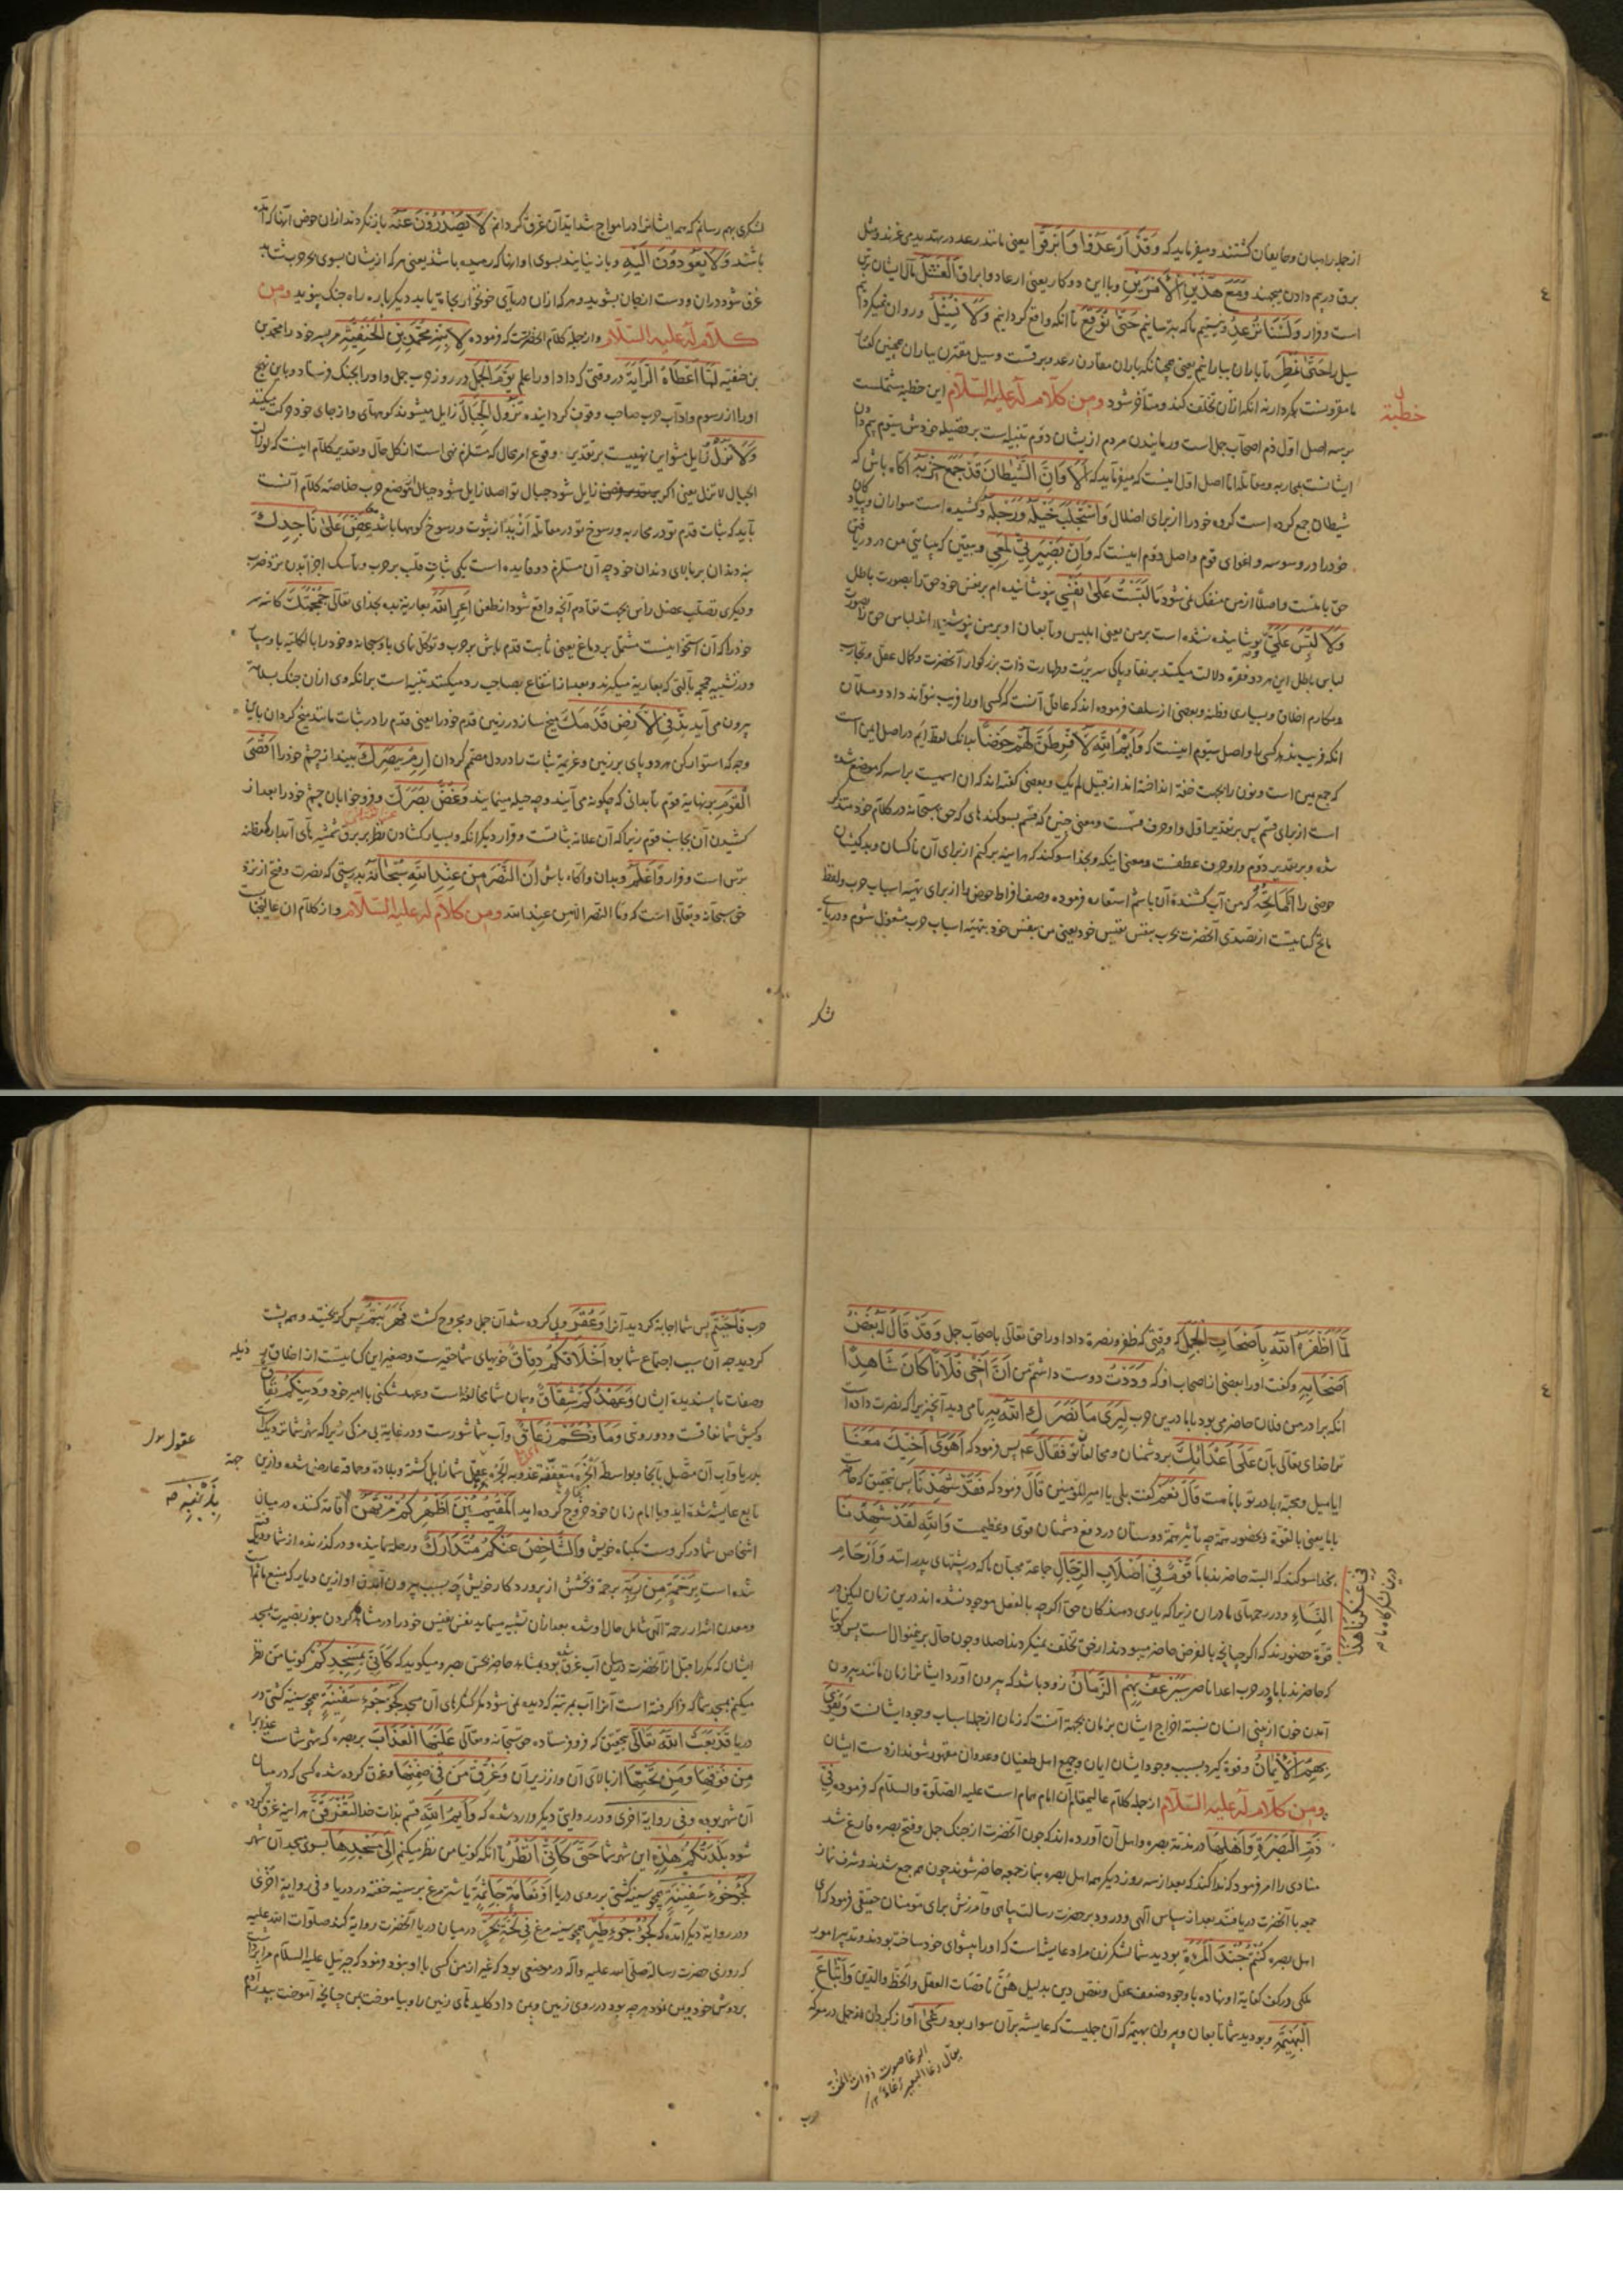 از جمله راهبان و حایفان کشتند و میفرماید که وَقَدْ اَرْعَدُوْا وَاَبْرَقُوْا یعنی مانند رعد در تهدید می غرند و مثل
برق در بیم دادن میجهند وَمَعَ هٰذَیْنِ الْاَمْرَیْنِ و با این دو کار یعنی ارعاد و ابراق الْفَشَلُ مآل ایشان
است و قرار وَلَسْنَا نُرْعِدُ و نیستیم ما که بترسانیم حَتّٰی نُوْقِعَ تا آنکه واقع کردانیم وَلَا نُسِیْلُ و روان نمیکردانیم
سیل را حَتّٰی نُمْطِرَ تا باران ببارانیم یعنی همچنانکه باران مقارن رعد و برقست و سیل مقترن بباران همچنین
ما مقرونست بکردار نه آنکه از آن تخلف کند و متأخر شود وَمِن کَلَامٍ لَهُ عَلَیْهِ السَّلَام این خطبه مشتملست
خطبة
بر سه اصل اول ذم اصحاب جمل است دوم تنبیه است بر فضیلت خودش سیوم بیم دادن
ایشانست بمحاربه و مقاتله اما اصل اول اینست که میفرماید که اَلَا وَاِنَّ الشَّیْطَانَ قَدْ جَمَعَ حِزْبَهُ آکاه باش که
شیطان جمع کرده است کروه خود را از برای اضلال وَاسْتَجْلَبَ خَیْلَهُ وَرَجِلَهُ و کشیده است سواران و پیادکان
خود را در وسوسه و اغوای قوم و اصل دوم اینست که وَاِنَّ بَصِیْرَتِیْ لَمَعِیْ و بیقین که بینائی من در دریافتن
حق با منست و اصلا از من منفک نمی شود مَا لَبَّسْتُ عَلٰی نَفْسِیْ نپوشانیده ام بر نفس خود حق را بصورت باطل
وَلَا لُبِّسَ عَلَیَّ و پوشانیده نشده است بر من یعنی ابلیس و تابعان او بر من نپوشیده اند لباس حق را بصورت
لباس باطل این هر دو فقره دلالت میکند بر نقا و پاکی سریرت و طهارت ذات بزرکوار آنحضرت و کمال عقل و تجارب
و مکارم اخلاق و بسیاری فطنه و بعضی از سلف فرموده اند که عاقل آنست که کسی او را فریب نتواند داد
انکه فریب ندهد کسی را و اصل سیوم اینست که وَاَیْمُ اللّٰهِ لَاُفْرِطَنَّ لَهُمْ حَوْضًا بدانک لفظ ایم در اصل ایمن است
که جمع یمین است و نون را بجهت خفة انداخته اند از قبیل لم یک و بعضی کفته اند که آن اسمیست براسه که موضوع شده
است از برای قسم پس بر تقدیر اول واو حرف قسمست و معنی چنین که قسم بسوکندهای که حق سبحانه در کلام خود متذکر
شده و بر تقدیر دوم واو حرف عطفست و معنی اینکه و بخدا سوکند که هر آینه پر کنم از برای آن ناکسان و بدکیشان
حوضی را اَنَا مَاتِحُهُ که من آب کشنده آن باشم استعاره فرموده وصف افراط حوض را از برای تهیه اسباب حرب و لفظ
ماتح کنایتست از تصدی آنحضرت بحرب بنفس نفیس خود یعنی من بنفس خود بتهیه اسباب حرب مشغول شوم و در دریای
لشکری بهم رسانم که همه ایشانرا در امواج شداید آن غرق کردانم لَا یَصْدُرُوْنَ عَنْهُ بازنکردند از آن حوض آنها که آمده
باشند وَلَا یَعُوْدُوْنَ اِلَیْهِ و باز نیایند بسوی او آنها که رمیده باشند یعنی هر که از ایشان بسوی بحر حرب شتابد
غرق شود در آن و دست از جان بشوید و هر که از آن دریای خونخوار نجات یابد دیکرباره راه جنک نپوید وَمِن
کَلَامٍ لَهُ عَلَیْهِ السَّلَام و از جمله کلام آنحضرتست که فرموده لِاِبْنِهِ مُحَمَّدِ بْنِ الْحَنَفِیَّةِ مر پسر خود را محمد بن
بن حنفیه لَمَّا اَعْطَاهُ الرَّایَةَ در وقتی که داد او را علم یَوْمَ الْجَمَلِ در روز حرب جمل و او را بجنک فرستاد و باین نهج
او را از رسوم و آداب حرب صاحب وقوف کردانیده تَزُوْلُ الْجِبَالُ زایل میشوند کوههای و از جای خود حرکت میکنند
وَلَا تَزُلْ زایل مشو این نهییست بر تقدیر وقوع امر محال که مستلزم نهی است از کل حال و تقدیر کلام اینست که لو زالت
الجبال لا تزل یعنی اکر زایل شود جبال تو اصلا زایل شو از موضع حرب خلاصه کلام آنست
باید که ثبات قدم تو در محاربه و رسوخ تو در مقاتله از ثبوت و رسوخ کوهها باشد عَضَّ عَلٰی نَاجِذِكَ
بنه دندان بر بالای دندان خود چه آن مستلزم دو فایده است یکی ثبات قلب بر حرب و تماسک اجزا بدن نزد ضرب
و دیکری تصلب عضل رأس بجهت تقادم آنچه واقع شود از طعن اَعِرِ اللّٰهَ بعاریة بده بخدای تعالی جُمْجُمَتَكَ کاسه سر
خود را که آن استخوانیست مشتمل بر دماغ یعنی ثابت قدم باش بر حرب و توکل نمای
و در تشبیه جمجمه بآلتی که بعاریه میکیرند و بعد از انتفاع بصاحب رد میکنند تنبیه است بر آنکه وی از آن جنک بسلامت
بیرون می آید تِدْ فِی الْاَرْضِ قَدَمَكَ میخ ساز در زمین قدم خود را یعنی قدم را در ثبات مانند میخ کردان
وجه که استوار کن هر دو پای بر زمین و عزیمة ثبات را در دل مصمم کردان اِرْمِ بِبَصَرِكَ بینداز چشم خود را اَقْصَی
الْقَوْمِ بنهایة قوم تا بدانی که چکونه می آیند و چه حیله مینمایند وَغُضَّ بَصَرَكَ و فرو خوابان چشم خود را بعد از
کشیدن آن بجانب قوم زیرا که آن علامة ثباتست و وقار دیکر آنکه بسیار کشادن نظر بر برق شمشیرهای آبدار مظنه
ترس است و فرار وَاعْلَمْ و بدان و آکاه باش اَنَّ النَّصْرَ مِنْ عِنْدِ اللّٰهِ سُبْحَانَهُ بدرستی که نصرت و فتح از نزد
حق سبحانه و تعالی است که و ما النصر الا من عند الله وَمِن کَلَامٍ لَهُ عَلَیْهِ السَّلَام و از کلام آن عالیجناب
لَمَّا اَظْفَرَهُ اللّٰهُ بِاَصْحَابِ الْجَمَلِ وقتی که ظفر و نصرة داد او را حق تعالی باصحاب جمل وَقَدْ قَالَ لَهُ بَعْضُ
اَصْحَابِهِ و کفت او را بعضی از اصحاب او که وَدِدْتُ دوست داشتم من اَنَّ اَخِیْ فُلَانًا کَانَ شَاهِدًا
انکه برادر من فلان حاضر می بود با ما در این حرب لِیَرٰی مَا نَصَرَكَ اللّٰهُ بِهِ تا می دید آنچیزی را که نصرت داده است
ترا خدای تعالی بآن عَلٰی اَعْدَائِكَ بر دشمنان و مخالفان تو فَقَالَ پس فرمود که اَهَوٰی اَخِیْكَ مَعَنَا
ایا میل و محبة برادر تو با ماست قَالَ نَعَمْ کفت بلی یا امیر المؤمنین قَالَ فرمود که فَقَدْ شَهِدَنَا پس بتحقیق که حاضرست
با ما یعنی بالقوة و بحضور همة چه تأثیر همة دوستان در دفع دشمنان قوی و عظیمست وَاللّٰهِ لَقَدْ شَهِدَنَا
بخدا سوکند که البته حاضرند با ما قَوْمٌ فِیْ اَصْلَابِ الرِّجَالِ جماعة محبان ما که در پشتهای پدرانند وَاَرْحَامِ
النِّسَاءِ و در رحمهای مادران زیرا که یاری دهندکان حق اکرچه بالفعل موجود نشده اند در این زمان لیکن در
فِیْ عَسْکَرِنَا هٰذَا
درین لشکرکاه ما
قوة حضورند که اکر چنانچه بالفرض حاضر میبودند از حق تخلف نمیکردند اصلا و چون حال بر این منوال است پس کویا
که حاضرند با ما در حرب اعدا ناصر سَیَرْعَفُ بِهِمُ الزَّمَانُ زود باشد که بیرون آورد ایشانرا زمان مانند بیرون
آمدن خون از بینی انسان نسبة اخراج ایشان بزمان بجهة آنست که زمان از جمله اسباب وجود ایشانست وَیَقْوٰی
بِهِمُ الْاِیْمَانُ و قوة کیرد بسبب وجود ایشان ایمان و جمیع اهل طغیان و عدوان مقهور شوند از دست ایشان
وَمِن کَلَامٍ لَهُ عَلَیْهِ السَّلَام از جمله کلام عالیمقام آن امام همام است علیه الصلوة والسلام که فرموده فِیْ
ذَمِّ الْبَصْرَةِ وَاَهْلِهَا در مذمة بصره و اهل آن آورده اند که چون آنحضرت از جنک جمل و فتح بصره فارغ شد
منادی را امر فرمود که ندا کند که بعد از سه روز دیکر همه اهل بصره بنماز جمعه حاضر شوند چون همه جمع شدند و شرف نماز
جمعه با آنحضرت دریافتند بعد از سپاس الهی و درود بر حضرت رسالت پناهی و آمرزش برای مؤمنان حقیقی فرمود که ای
اهل بصره کُنْتُمْ جُنْدَ الْمَرْأَةِ بودید شما لشکر زن مراد عایشه است که او را پیشوای خود ساخته بودند
هُنَّ ناقصات العقل والحظ والدین وَاَتْبَاعَ
الْبَهِیْمَةِ و بودید شما تابعان و پیروان بهیمه که آن جملیست که عایشه بر آن سوار بود رَغَا آواز کرد آن جمل در معرکه
حرب فَاَجَبْتُمْ پس شما اجابة کردید آنرا وَعُقِرَ و پی کرده شد آن جمل و مجروح کشت فَهَرَبْتُمْ پس کریختید و هزیمت
کردید چه آن سبب اجتماع شما بود اَخْلَاقُکُمْ دِقَاقٌ خویهای شما حقیرست و صغیر این کنایتست از اخلاق رذیله
وصفات ناپسندیده ایشان وَعَهْدُکُمْ شِقَاقٌ و پیمان شما مخالفة است و عهد شکنی با امیر خود وَدِیْنُکُمْ نِفَاقٌ
و کیش شما نفاقست و دورویی وَمَاؤُکُمْ زُعَاقٌ و آب شما شورست و در غایة بی مزکی زیرا که شهر شما نزدیک است
بدریا و آب آن متصل بآنجا و بواسطه ابخرة متعفنة عقل شما زایل کشته و بلادة و حماقة عارض شده و ازین جهة
تابع عایشه شده اید و با امام زمان خود خروج کرده اید اَلْمُقِیْمُ بَیْنَ اَظْهُرِکُمْ مُرْتَهَنٌ اقامة کننده در میان
بِذَنْبِهِ
اشخاص شما در کرو است بکناه خویش وَالشَّاخِصُ عَنْکُمْ مُتَدَارَكٌ و رحلة نماینده و درکذرنده از شما دریافته
شده است بِرَحْمَةٍ مِنْ رَبِّهِ برحمة و بخشش از پروردکار خویش چه بسبب بیرون آمدن او ازین دیار که منبع مآثم
و معدن اشرار رحمة الهی شامل حال او شده بعد از آن تشبیه مینماید نفس نفیس خود را در مشاهده کردن بنور بصیرت مسجد
ایشان که مکررا قبل از آنحضرت در سیل آب غرق شده بود بمشاهده حاضر بحس بصر و میکوید که کَاَنِّیْ بِمَسْجِدِکُمْ کوئیا من نظر
میکنم بمسجد شما که فرا کرفته است آنرا آب بمرتبه که دیده نمی شود مکر کنکرهای آن مسجد کَجُؤْجُؤِ سَفِیْنَةٍ همچو سینه کشتی در
دریا قَدْ بَعَثَ اللّٰهُ تَعَالٰی بتحقیق که فرو فرستاده حق سبحانه و تعالی عَلَیْهَا الْعَذَابَ بر بصره که شهر شماست عذاب را
مِنْ فَوْقِهَا وَمِنْ تَحْتِهَا از بالای آن و از زیر آن وَغَرِقَ مَنْ فِیْ ضِمْنِهَا و غرق کرده شده کسی که در میان
آن شهر بوده وَفِیْ رِوَایَةٍ اُخْرٰی و در روایتی دیکر وارد شده که وَاَیْمُ اللّٰهِ قسم بذات خدا لَتَغْرَقَنَّ هر آینه غرق کرده
شود بَلْدَتُکُمْ هٰذِهِ این شهر شما حَتّٰی کَاَنِّیْ اَنْظُرُ تا آنکه کوئیا من نظر میکنم اِلٰی مَسْجِدِهَا بسوی مسجد آن شهر
کَجُؤْجُؤِ سَفِیْنَةٍ همچو سینه کشتی بر روی دریا اَوْ نَعَامَةٍ جَاثِمَةٍ یا شترمرغ بر سینه خفته در دریا و فی روایة اخری
و در روایة دیکر آمده که کَجُؤْجُؤِ طَیْرٍ همچو سینه مرغ فِیْ لُجَّةِ بَحْرٍ در میان دریا آنحضرت روایة کند صلوات الله علیه
که روزی حضرت رسالة صلی الله علیه وآله در موضعی بود که غیر از من کسی با او نبود فرمود که جبرئیل علیه السلام مرا برداشت
بر دوش خود و بمن نمود هر چه بود در روی زمین و بمن داد کلیدهای زمین را و بیاموخت بمن چنانچه آموخت پدرم آدم